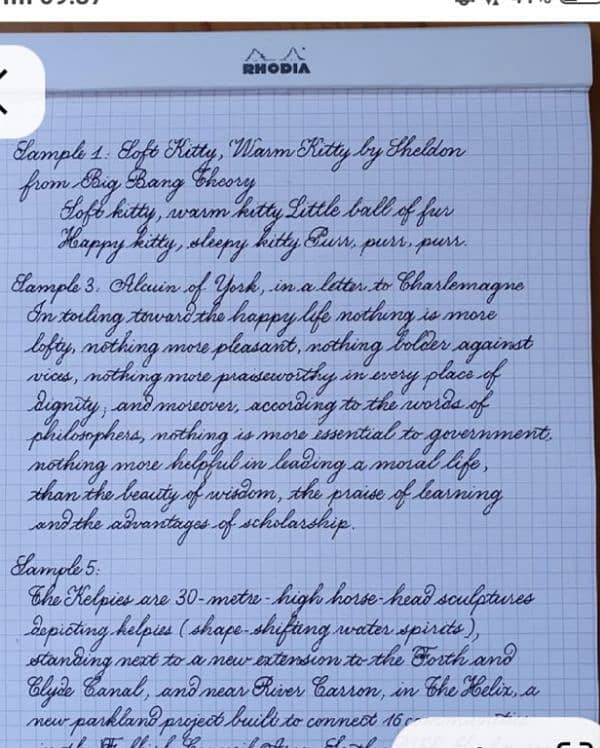 RHODIA
Sample 1: Soft Kitty, Warm Kitty by Sheldon
from Big Bang Theory
Soft kitty, warm kitty Little ball of fur
Happy kitty, sleepy kitty Purr, purr, purr.
Sample 3: Alcuin of York, in a letter to Charlemagne
In toiling toward the happy life nothing is more
lofty, nothing more pleasant, nothing bolder against
vices, nothing more praiseworthy in every place of
dignity; and moreover, according to the words of
philosophers, nothing is more essential to government,
nothing more helpful in leading a moral life,
than the beauty of wisdom, the praise of learning
and the advantages of scholarship.
Sample 5:
The Kelpies are 30-metre-high horse-head sculptures
depicting kelpies (shape-shifting water spirits),
standing next to a new extension to the Forth and
Clyde Canal, and near River Carron, in The Helix, a
new parkland project built to connect 16